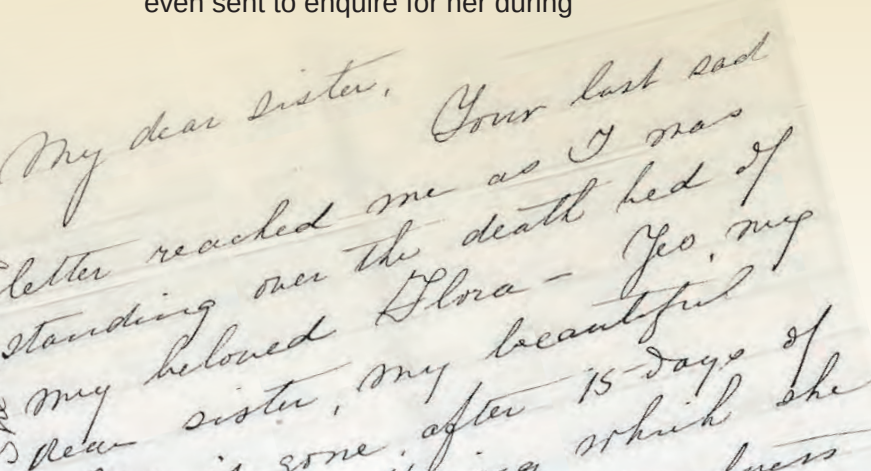 even sent to enquire for her during
My dear sister,
Your last sad
letter reached me as I was
standing over the death bed of
my beloved Flora – Yes, my
dear sister, my beautiful
gone after 15 days of
which she